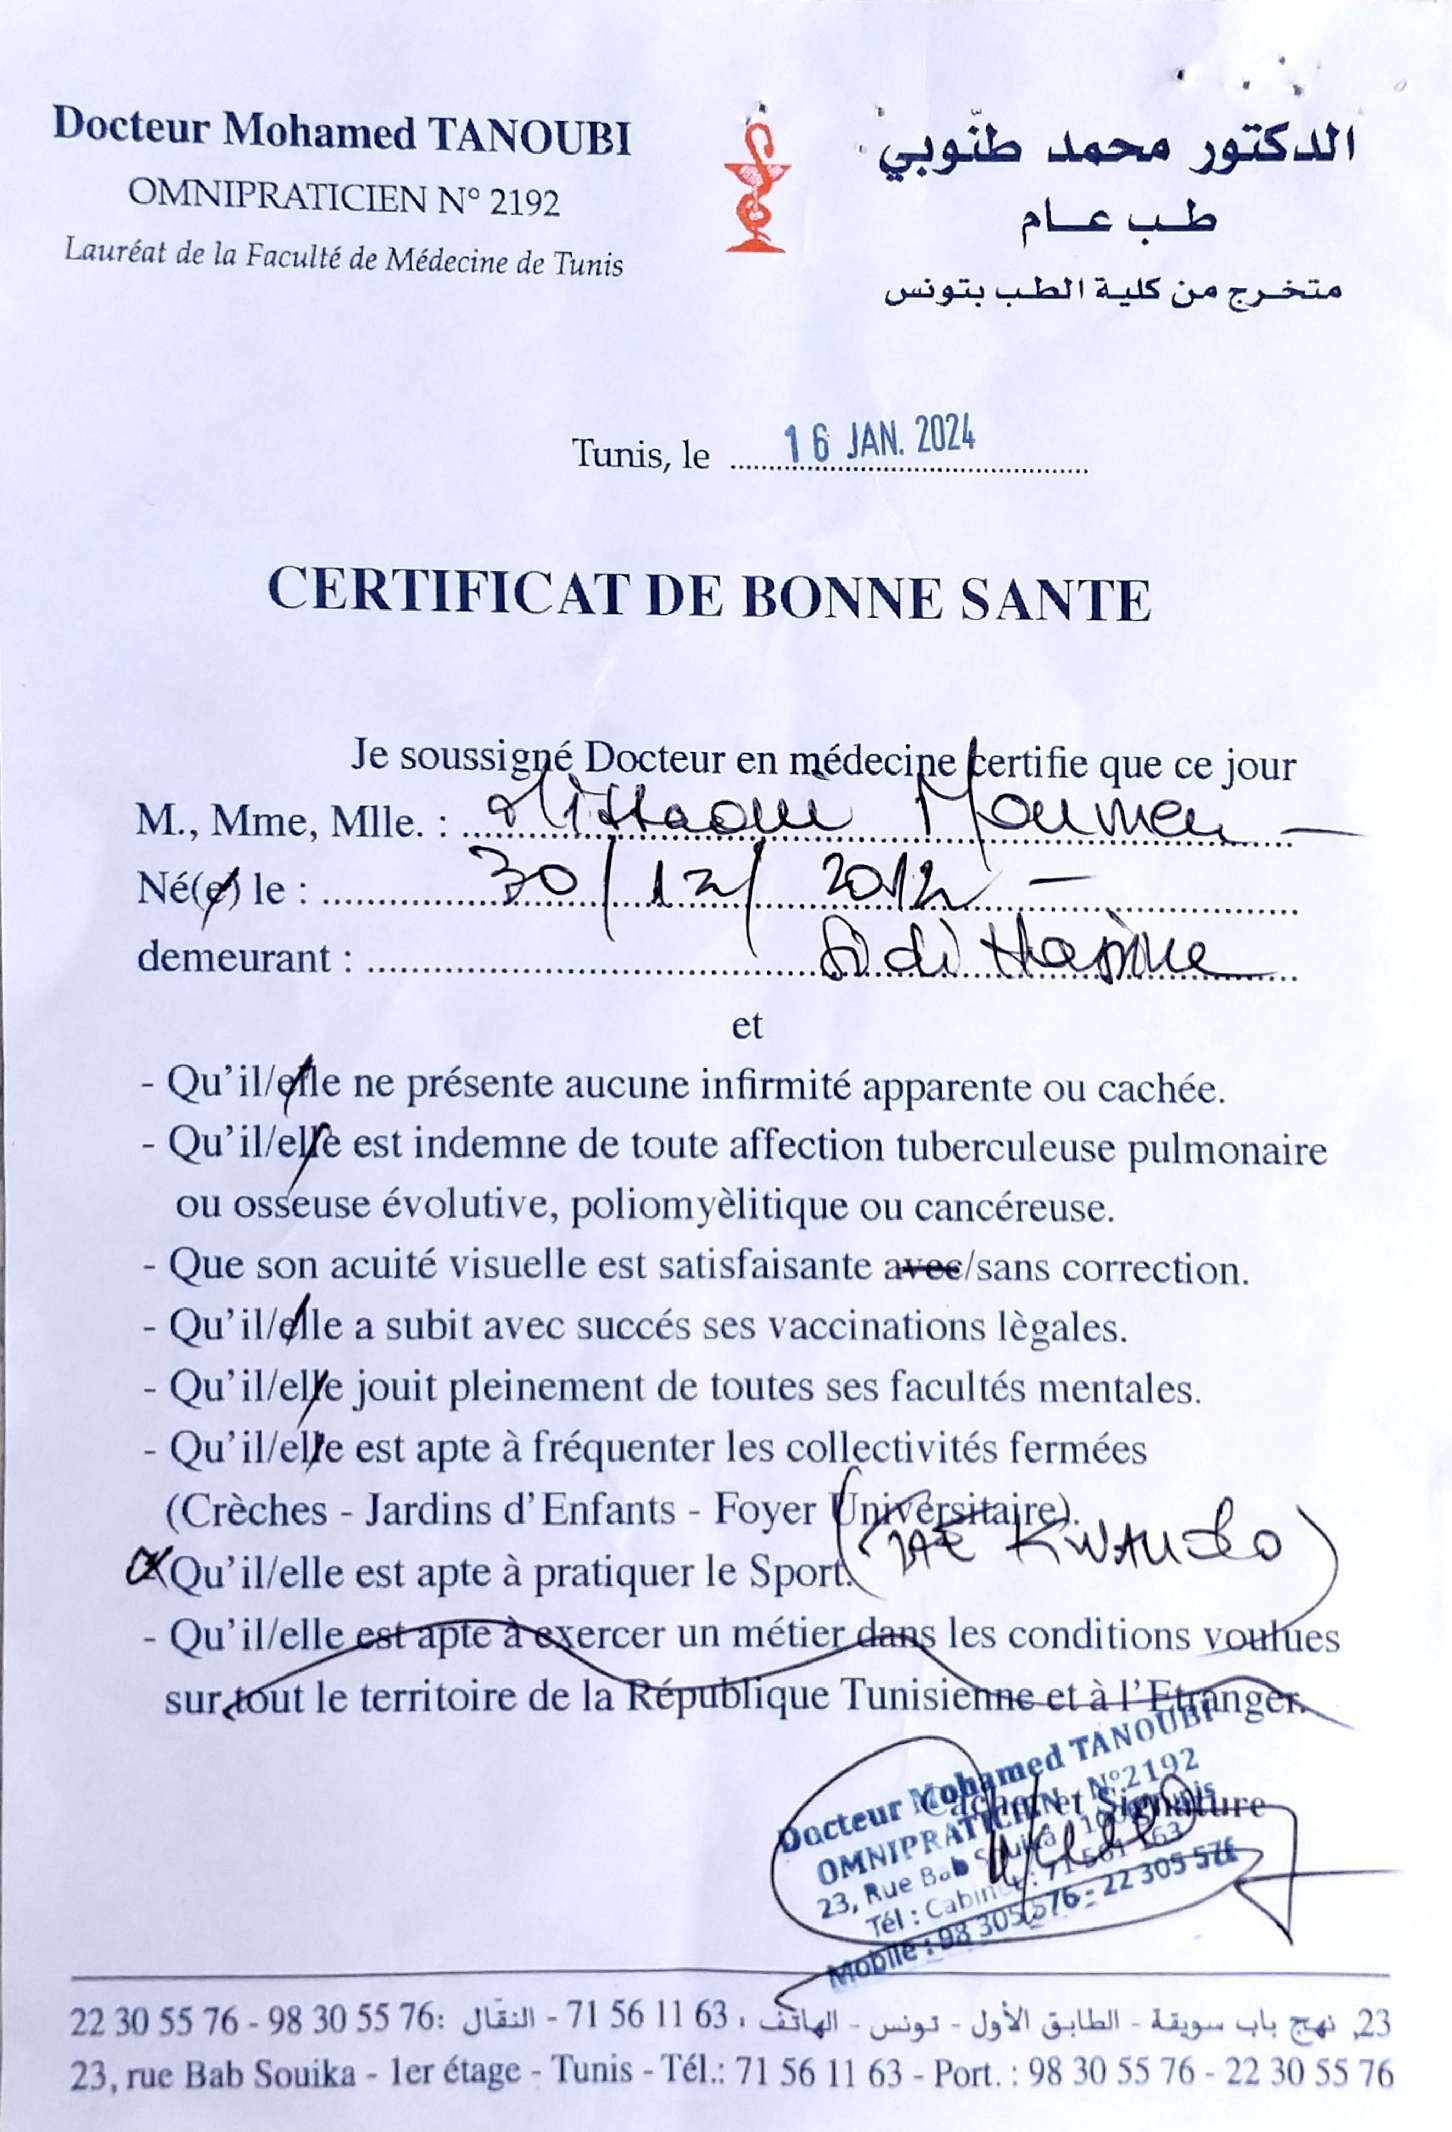 Docteur Mohamed TANOUBI
OMNIPRATICIEN N° 2192
Lauréat de la Faculté de Médecine de Tunis
الدكتور محمد طنّوبي
طب عام
متخرج من كلية الطب بتونس
Tunis, le 16 JAN. 2024
CERTIFICAT DE BONNE SANTE
Je soussigné Docteur en médecine certifie que ce jour
M., Mme, Mlle. : Missaoui Moumen
Né(e) le : 30/12/2012
demeurant : Sidi Hassine
et
- Qu'il/elle ne présente aucune infirmité apparente ou cachée.
- Qu'il/elle est indemne de toute affection tuberculeuse pulmonaire
ou osseuse évolutive, poliomyèlitique ou cancéreuse.
- Que son acuité visuelle est satisfaisante avec/sans correction.
- Qu'il/elle a subit avec succés ses vaccinations lègales.
- Qu'il/elle jouit pleinement de toutes ses facultés mentales.
- Qu'il/elle est apte à fréquenter les collectivités fermées
(Crèches - Jardins d'Enfants - Foyer Universitaire).
Qu'il/elle est apte à pratiquer le Sport. (TAE KWANDO)
- Qu'il/elle est apte à exercer un métier dans les conditions voulues
sur tout le territoire de la République Tunisienne et à l'Etranger.
Cachet et Signature
Docteur Mohamed TANOUBI
OMNIPRATICIEN N°2192
23, Rue Bab Souika Tunis
Tél : Cabinet : 71 561 163
Mobile : 98 305 576 - 22 305 576
23, نهج باب سويقة - الطابق الأول - تونس - الهاتف : 63 11 56 71 - النقّال : 76 55 30 98 - 76 55 30 22
23, rue Bab Souika - 1er étage - Tunis - Tél.: 71 56 11 63 - Port. : 98 30 55 76 - 22 30 55 76